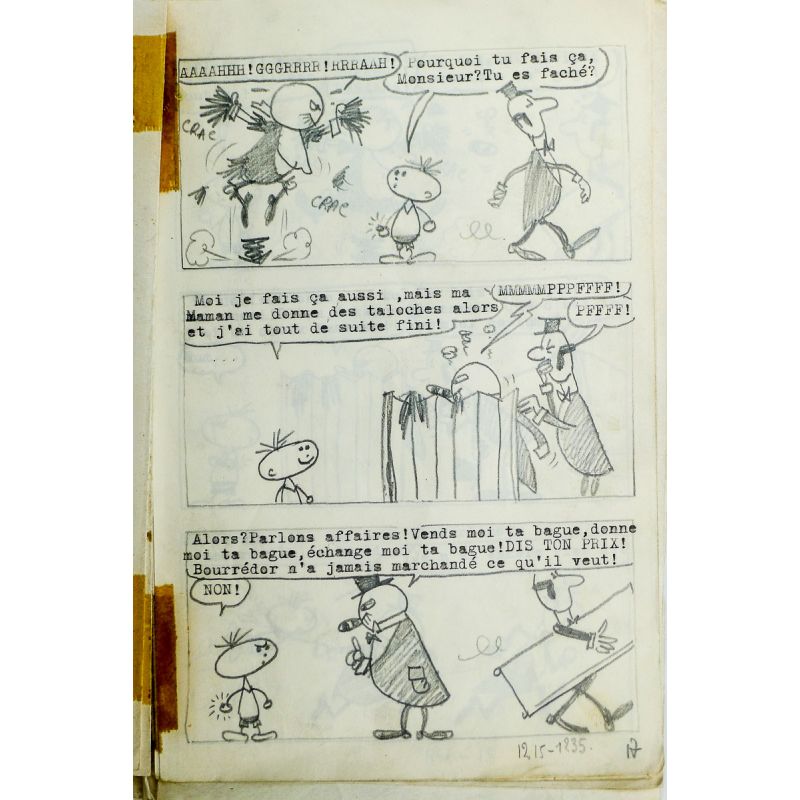 AAAAHHH!GGGRRRR!RRRAAH!
Pourquoi tu fais ça,
Monsieur?Tu es faché?
CRAC
CRAC
Moi je fais ça aussi ,mais ma
Maman me donne des taloches alors
et j'ai tout de suite fini!
...
MMMMMPPPFFFF!
PFFFF!
Alors?Parlons affaires!Vends moi ta bague,donne
moi ta bague,échange moi ta bague!DIS TON PRIX!
Bourrédor n'a jamais marchandé ce qu'il veut!
NON!
1215-1235.
17